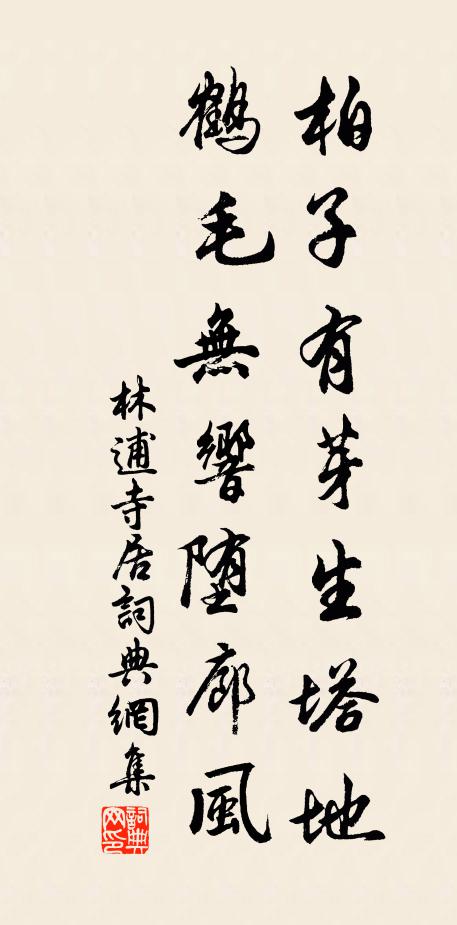 柏子有芽生塔地
鶴毛無響堕廊風
林逋寺居詞典網集
詞典網印